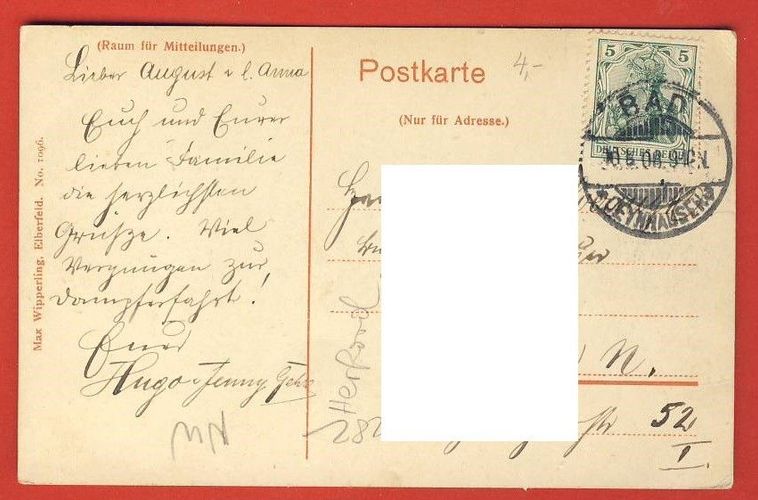 (Raum für Mitteilungen.)
Lieber August u l. Anna
Euch und Eurer
lieben Familie
die herzlichsten
Grüsze. Viel
Vergnügen zur
Dampferfahrt!
Euer
Hugo u Jenny
Max Wipperling, Elberfeld. No. 1096.
Postkarte
4,-
(Nur für Adresse.)
5 5
DEUTSCHES REICH
BAD
OEYNHAUSEN
N.
str 52
I.